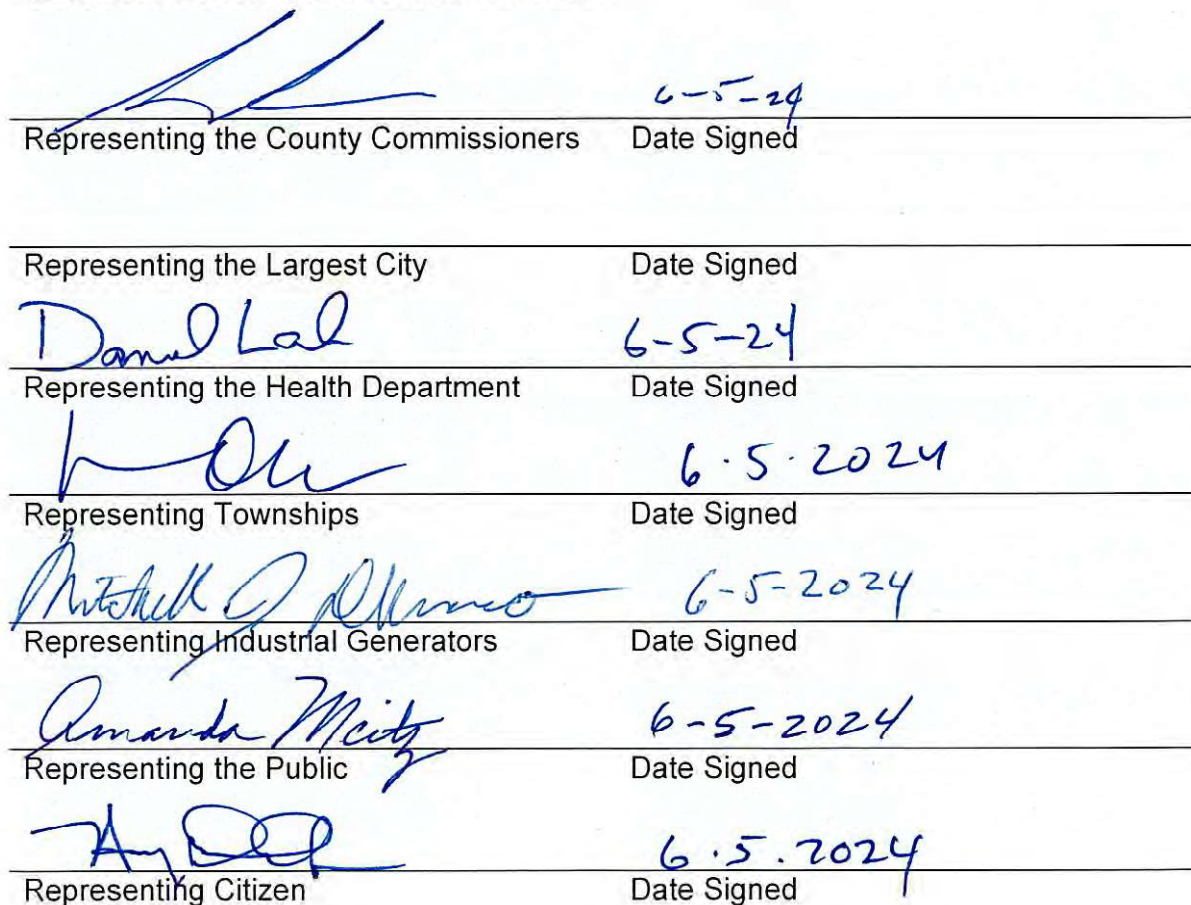 6-5-24
Representing the County Commissioners Date Signed
Representing the Largest City Date Signed
6-5-24
Representing the Health Department Date Signed
6.5.2024
Representing Townships Date Signed
Mitchell J 6-5-2024
Representing Industrial Generators Date Signed
Amanda Meitz 6-5-2024
Representing the Public Date Signed
6.5.2024
Representing Citizen Date Signed